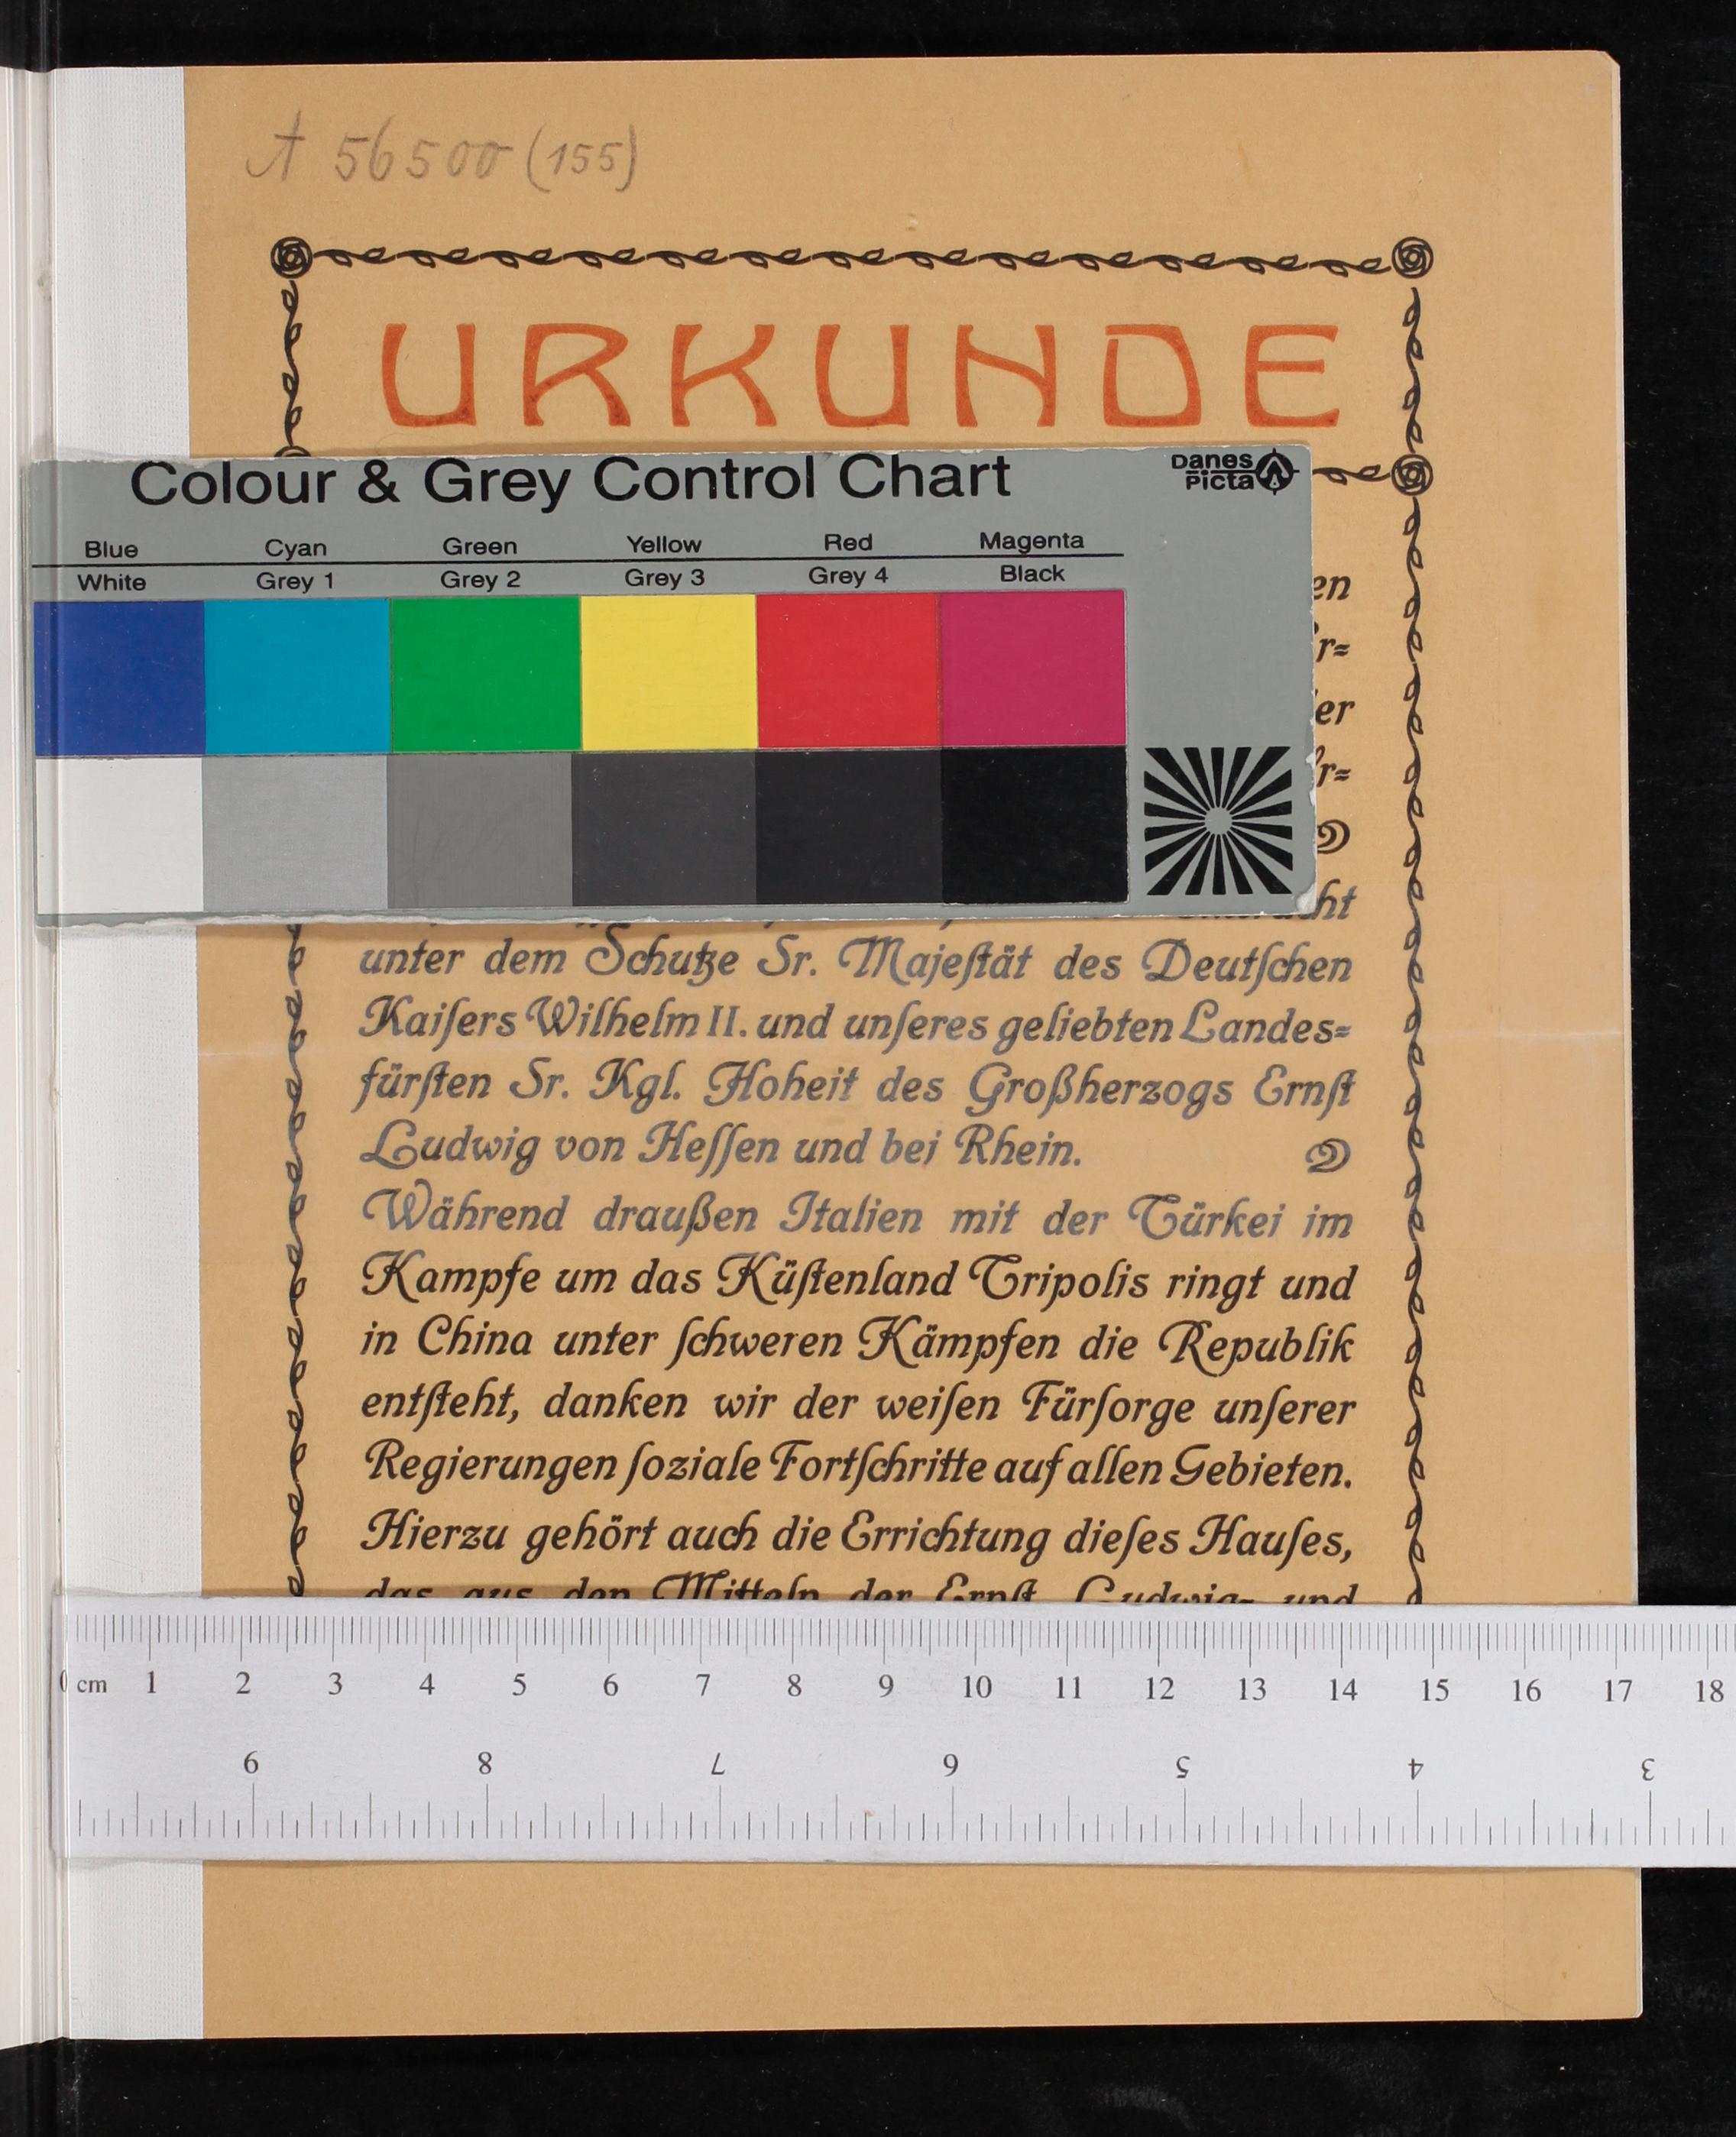 A 56500 (155)
URKUNDE
Colour & Grey Control Chart
Danes
Picta
Blue Cyan Green Yellow Red Magenta
White Grey 1 Grey 2 Grey 3 Grey 4 Black
en
r=
er
r=
ht
unter dem Schutze Sr. Majeſtät des Deutſchen
Kaiſers Wilhelm II. und unſeres geliebten Landes=
fürſten Sr. Kgl. Hoheit des Großherzogs Ernſt
Ludwig von Heſſen und bei Rhein.
Während draußen Italien mit der Türkei im
Kampfe um das Küſtenland Tripolis ringt und
in China unter ſchweren Kämpfen die Republik
entſteht, danken wir der weiſen Fürſorge unſerer
Regierungen ſoziale Fortſchritte auf allen Gebieten.
Hierzu gehört auch die Errichtung dieſes Hauſes,
das aus den Mitteln der Ernſt Ludwig- und
0 cm 1 2 3 4 5 6 7 8 9 10 11 12 13 14 15 16 17 18
9 8 7 6 5 4 3